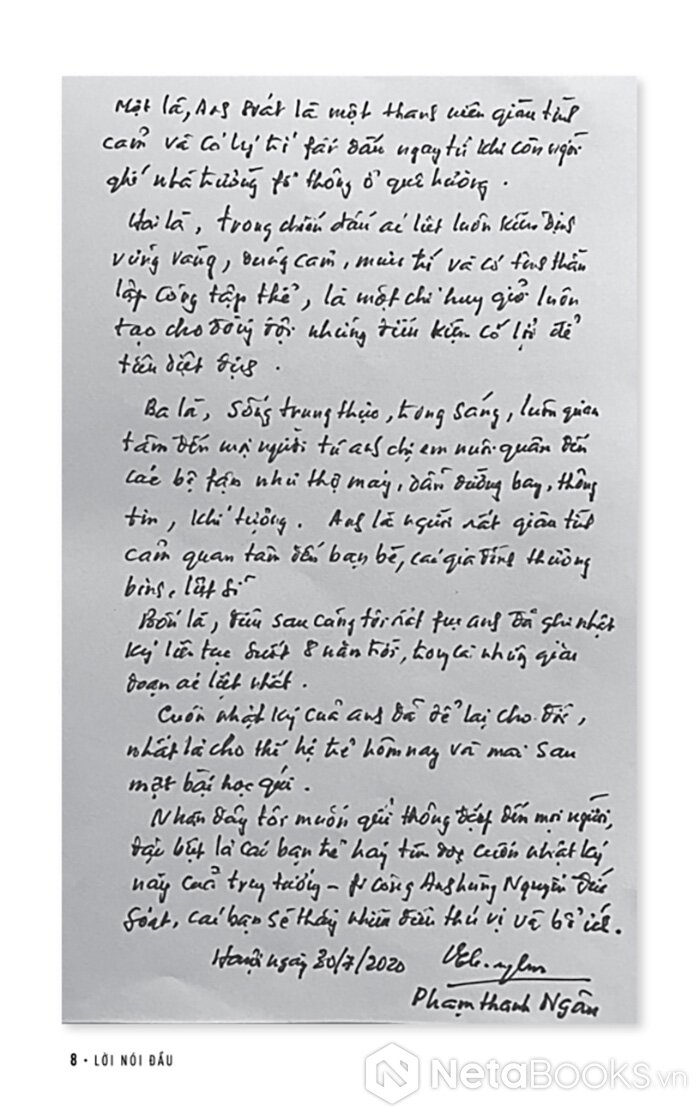 Một là, Anh Soát là một thanh niên giàu tình
cảm và có lý trí fấn đấu ngay từ khi còn ngồi
ghế nhà trường fổ thông ở quê hương.
Hai là, trong chiến đấu ác liệt luôn kiên định
vững vàng, dũng cảm, mưu trí và có tinh thần
lập công tập thể, là một chỉ huy giỏi luôn
tạo cho đồng đội những điều kiện có lợi để
tiêu diệt địch.
Ba là, sống trung thực, trong sáng, luôn quan
tâm đến mọi người từ anh chị em nuôi quân đến
các bộ fận như thợ máy, dẫn đường bay, thông
tin, khí tượng. Anh là người rất giàu tình
cảm quan tâm đến bạn bè, các gia đình thương
binh, liệt sĩ
Bốn là, điều sau cùng tôi rất fục anh đã ghi nhật
ký liên tục suốt 8 năm trời, trong cả những giai
đoạn ác liệt nhất.
Cuốn nhật ký của anh đã để lại cho đời,
nhất là cho thế hệ trẻ hôm nay và mai sau
một bài học quí.
Nhân đây tôi muốn gửi thông điệp đến mọi người,
đặc biệt là các bạn trẻ hãy tìm đọc cuốn nhật ký
này của trung tướng - fi công Anh hùng Nguyễn Đức
Soát, các bạn sẽ thấy nhiều điều thú vị và bổ ích.
Hà nội ngày 30/7/2020
Phạm Thanh Ngân
8 • LỜI NÓI ĐẦU
NetaBooks.vn